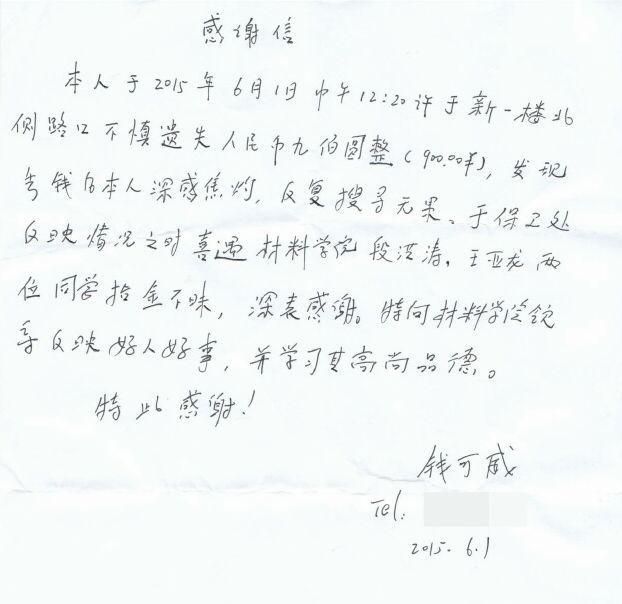 感谢信
本人于2015年6月1日中午12:20许于新一楼北
侧路口不慎遗失人民币九佰圆整(900.00¥),发现
丢钱后本人深感焦灼,反复搜寻无果、于保卫处
反映情况之时喜遇材料学院段洪涛、王亚龙两
位同学拾金不昧,深表感谢。特向材料学院领
导反映好人好事,并学习其高尚品德。
特此感谢!
钱可威
Tel:
2015.6.1